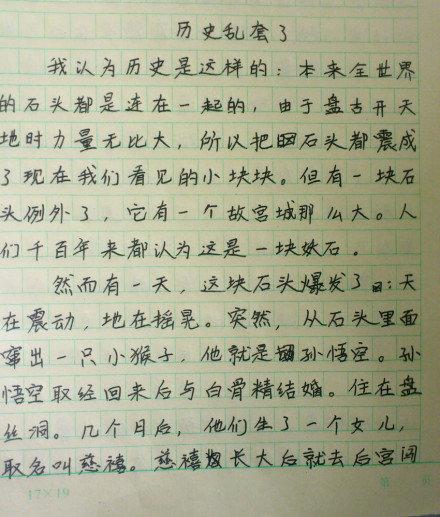 历史乱套了
我认为历史是这样的：本来全世界
的石头都是连在一起的，由于盘古开天
地时力量无比大，所以把石头都震成
了现在我们看见的小块块。但有一块石
头例外了，它有一个故宫城那么大。人
们千百年来都认为这是一块妖石。
然而有一天，这块石头爆发了：天
在震动，地在摇晃。突然，从石头里面
窜出一只小猴子，他就是孙悟空。孙
悟空取经回来后与白骨精结婚。住在盘
丝洞。几个月后，他们生了一个女儿，
取名叫慈禧。慈禧长大后就去后宫闯
17×19
第 页